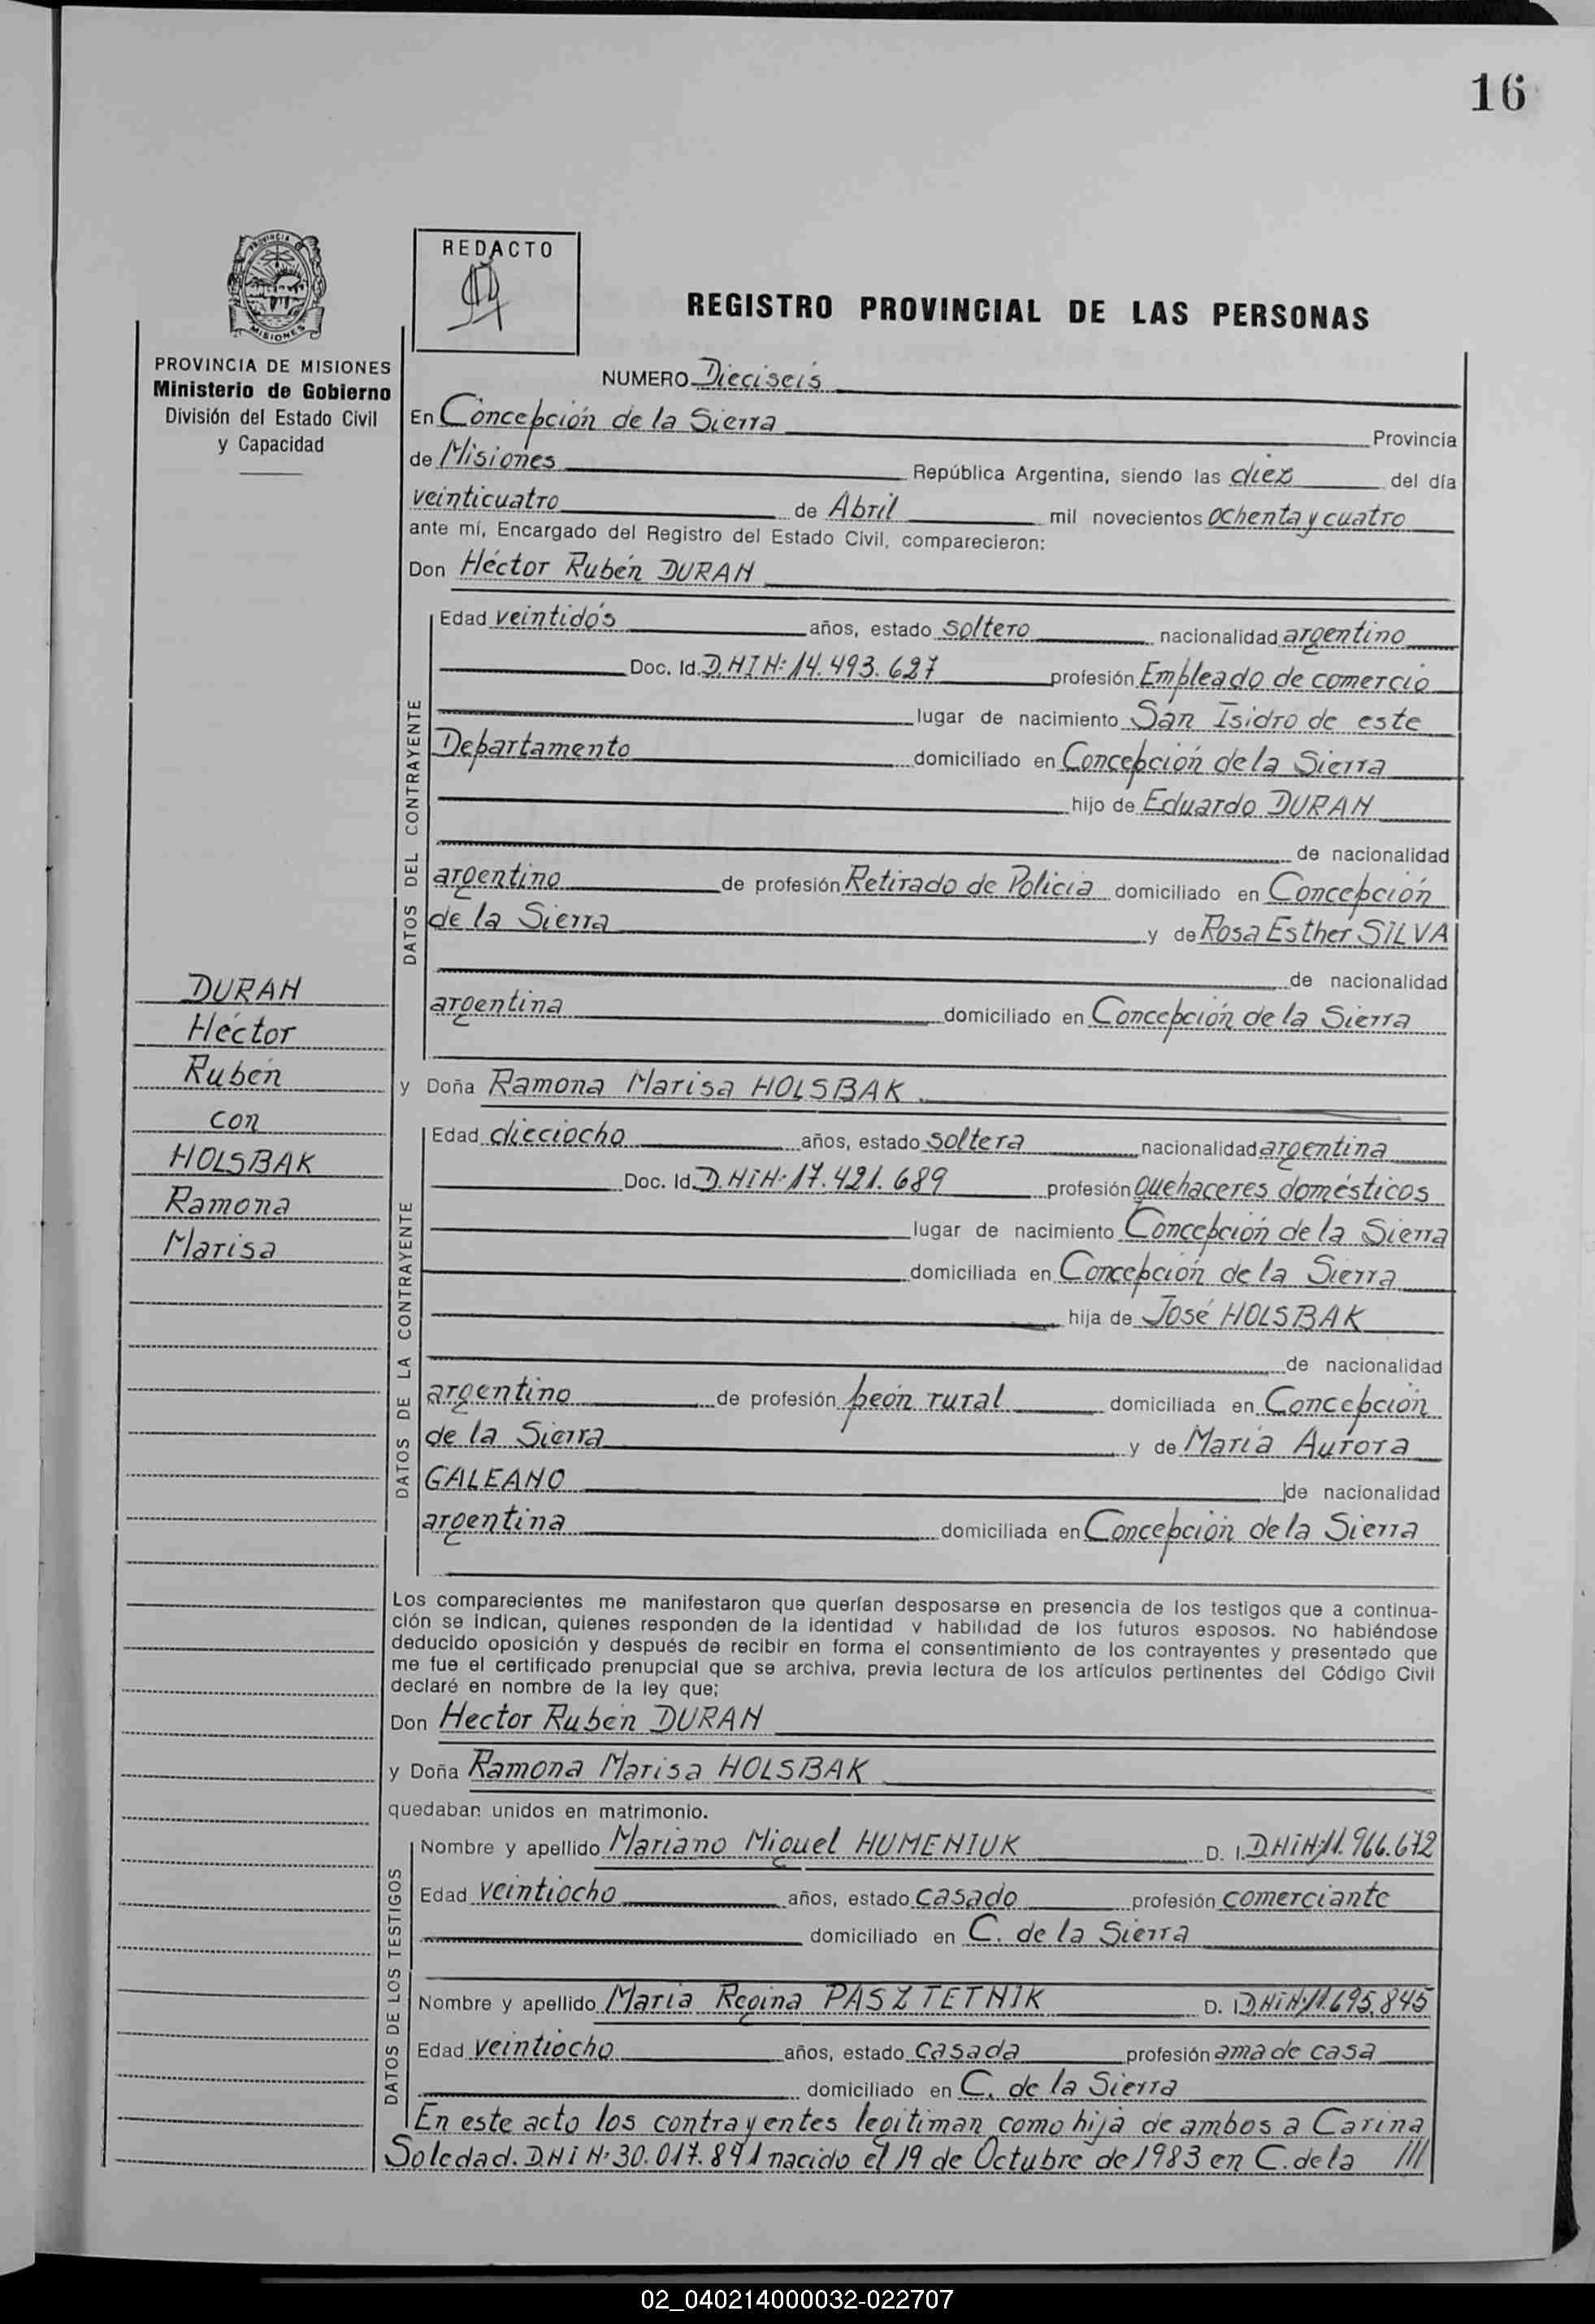 16
PROVINCIA DE
MISIONES
REDACTO
REGISTRO PROVINCIAL DE LAS PERSONAS
PROVINCIA DE MISIONES
Ministerio de Gobierno
División del Estado Civil
y Capacidad
NUMERO Dieciseis
En Concepción de la Sierra Provincia
de Misiones República Argentina, siendo las diez del día
veinticuatro de Abril mil novecientos ochenta y cuatro
ante mí, Encargado del Registro del Estado Civil, comparecieron:
Don Héctor Rubén DURAN
DATOS DEL CONTRAYENTE
Edad veintidós años, estado soltero nacionalidad argentino
Doc. Id. D.NIN: 14.493.627 profesión Empleado de comercio
lugar de nacimiento San Isidro de este
Departamento domiciliado en Concepción de la Sierra
hijo de Eduardo DURAN
de nacionalidad
argentino de profesión Retirado de Policía domiciliado en Concepción
de la Sierra y de Rosa Esther SILVA
de nacionalidad
argentina domiciliado en Concepción de la Sierra
DURAN
Héctor
Rubén
con
HOLSBAK
Ramona
Marisa
y Doña Ramona Marisa HOLSBAK
DATOS DE LA CONTRAYENTE
Edad dieciocho años, estado soltera nacionalidad argentina
Doc. Id. D.NiN: 17.421.689 profesión quehaceres domésticos
lugar de nacimiento Concepción de la Sierra
domiciliada en Concepción de la Sierra
hija de José HOLSBAK
de nacionalidad
argentino de profesión peón rural domiciliada en Concepción
de la Sierra y de María Aurora
GALEANO de nacionalidad
argentina domiciliada en Concepción de la Sierra
Los comparecientes me manifestaron que querían desposarse en presencia de los testigos que a continua-
ción se indican, quienes responden de la identidad y habilidad de los futuros esposos. No habiéndose
deducido oposición y después de recibir en forma el consentimiento de los contrayentes y presentado que
me fue el certificado prenupcial que se archiva, previa lectura de los artículos pertinentes del Código Civil
declaré en nombre de la ley que;
Don Hector Rubén DURAN
y Doña Ramona Marisa HOLSBAK
quedaban unidos en matrimonio.
DATOS DE LOS TESTIGOS
Nombre y apellido Mariano Miguel HUMENIUK D. I. D.NiN: 11.966.672
Edad veintiocho años, estado casado profesión comerciante
domiciliado en C. de la Sierra
Nombre y apellido María Regina PASZTETNIK D. I. D.NiN: 11.695.845
Edad veintiocho años, estado casada profesión ama de casa
domiciliado en C. de la Sierra
En este acto los contrayentes legitiman como hija de ambos a Carina
Soledad. D.Ni N: 30.017.841 nacido el 19 de Octubre de 1983 en C. de la ///
02_040214000032-022707